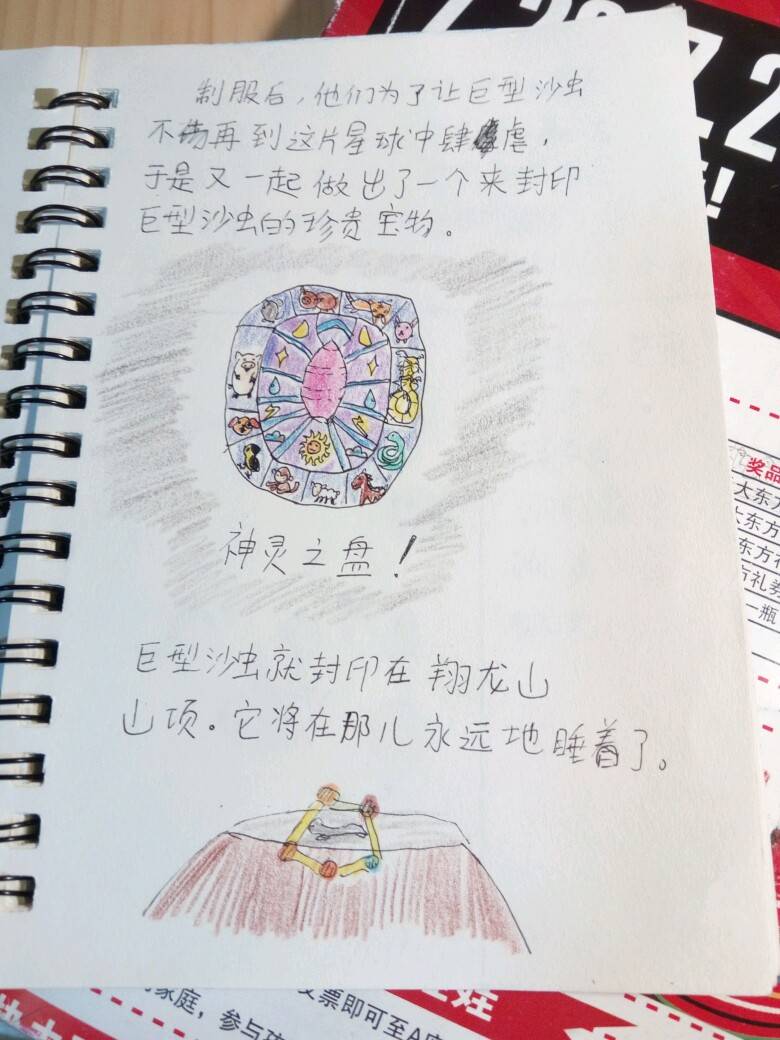 制服后，他们为了让巨型沙虫
不再到这片星球中肆虐，
于是又一起做出了一个来封印
巨型沙虫的珍贵宝物。
神灵之盘！
巨型沙虫就封印在翔龙山
山顶。它将在那儿永远地睡着了。
奖品
大东方
大东方
东方礼
方礼券
一瓶
家庭，参与
发票即可至A座